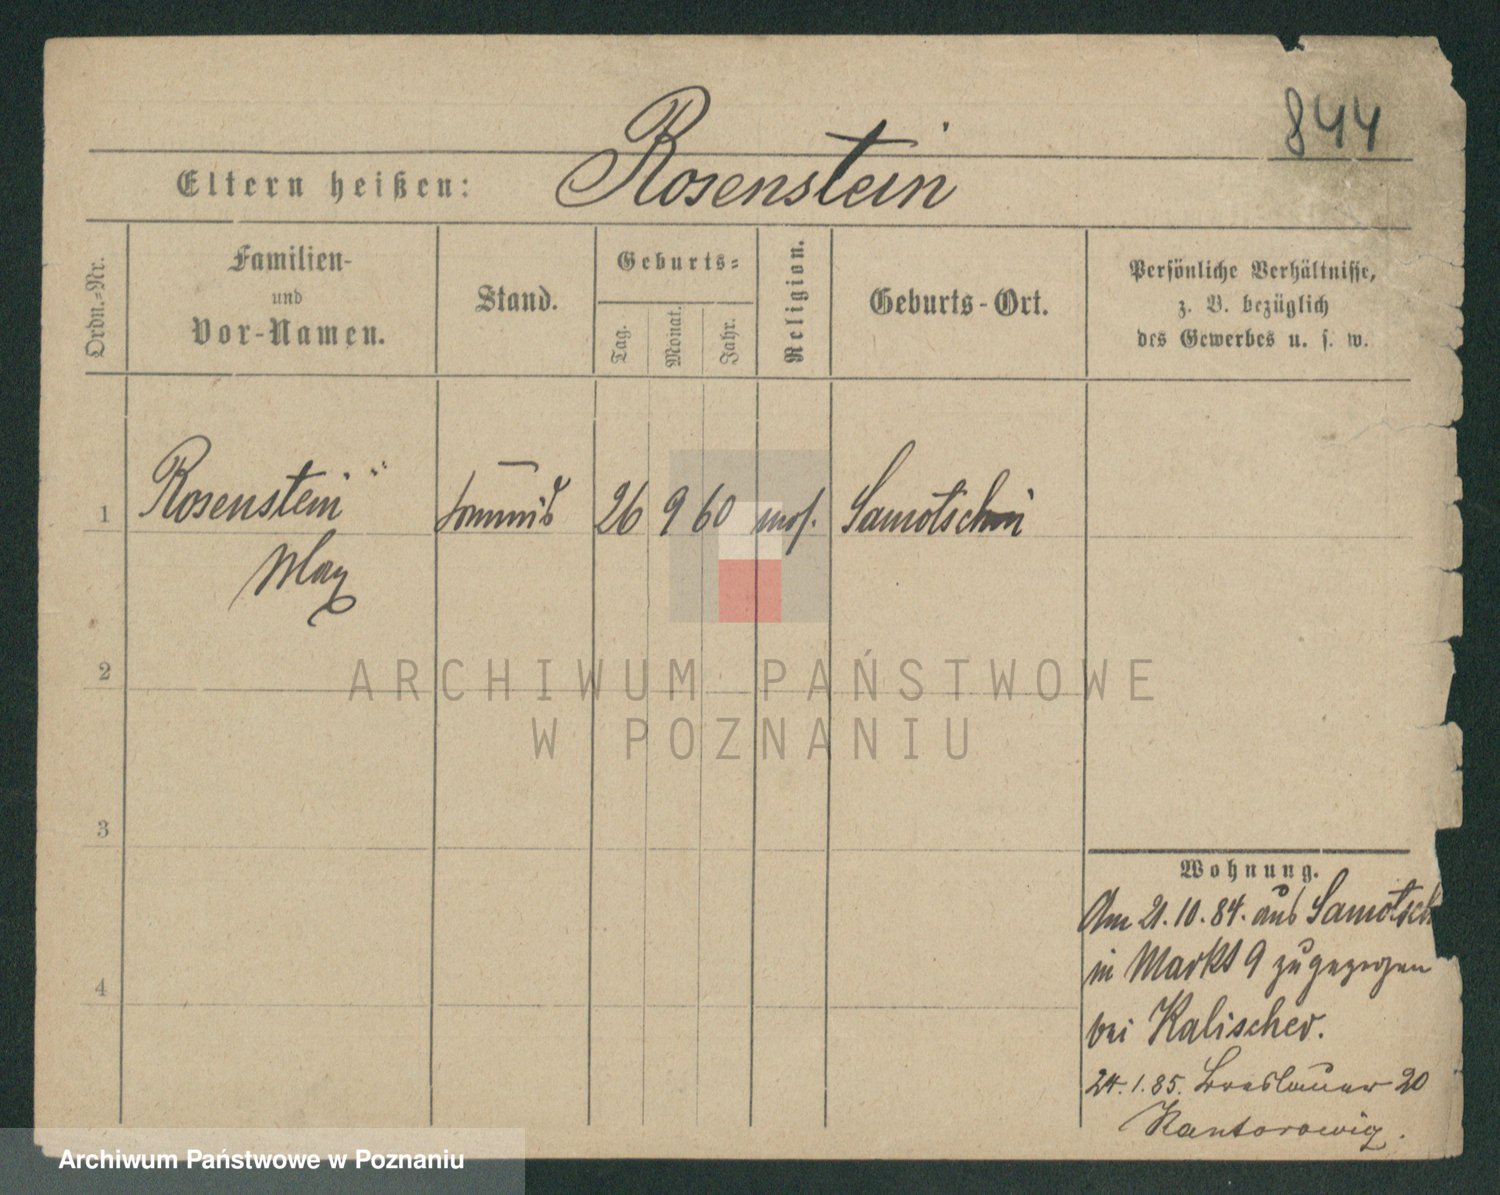 844
Eltern heißen: Rosenstein
Ordn.-Nr.
Familien-
und
Vor-Namen.
Stand.
Geburts-
Tag.
Monat.
Jahr.
Religion.
Geburts-Ort.
Persönliche Verhältnisse,
z. B. bezüglich
des Gewerbes u. s. w.
1 Rosenstein Kommis 26 9 60 mos. Samotschin
Max
2
3
4
Wohnung.
Am 21.10.84. aus Samotsch
in Markt 9 zugezogen
bei Kalischer.
24.1.85. Breslauer 20
Kantorowig.
ARCHIWUM PAŃSTWOWE
W POZNANIU
Archiwum Państwowe w Poznaniu